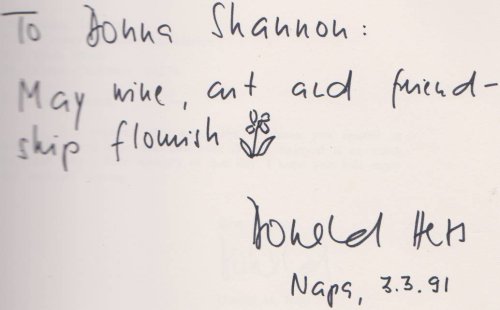 To Donna Shannon:
May wine, art and friend-
ship flourish
Donald Hess
Napa, 3.3.91